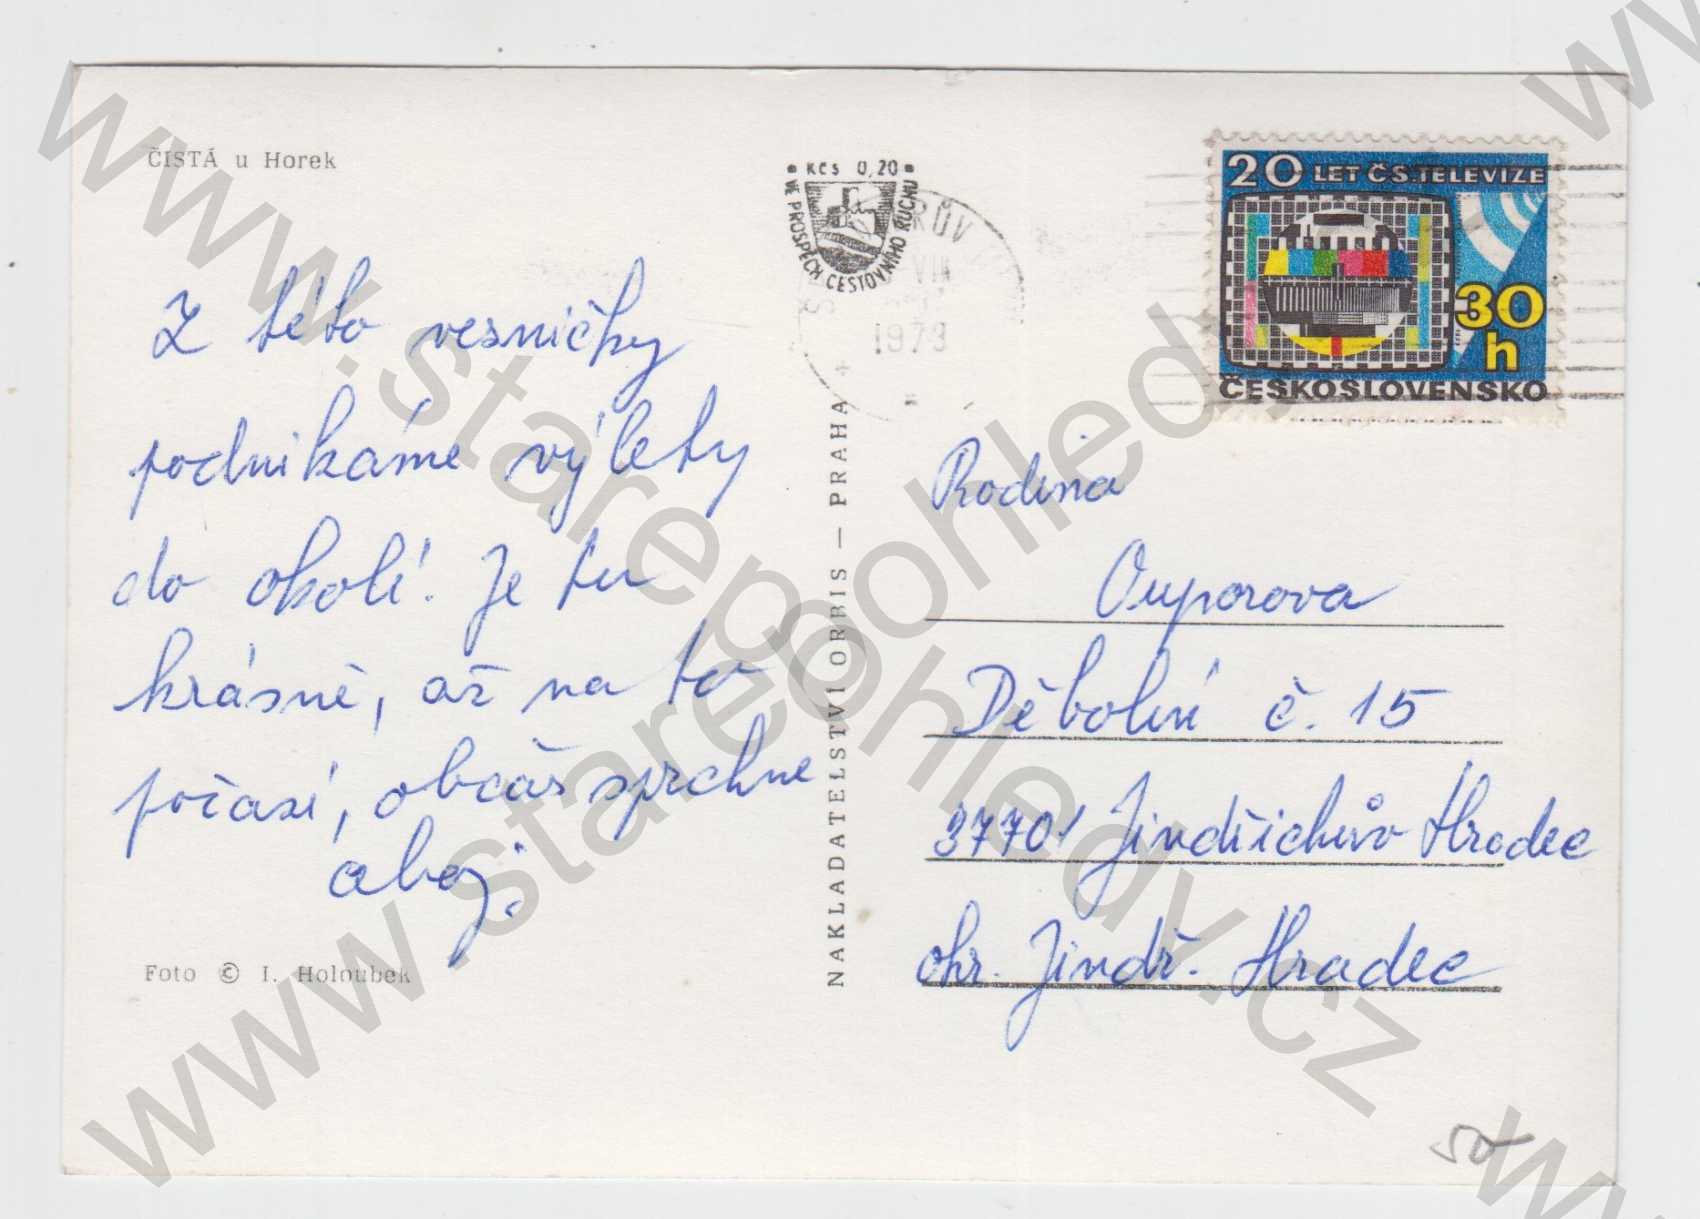 ČISTÁ u Horek
Kčs 0,20
VE PROSPĚCH CESTOVNÍHO RUCHU
VII
1973
20 LET ČS. TELEVIZE
30
h
ČESKOSLOVENSKO
Z této vesničky
podnikáme výlety
do okolí. Je tu
krásně, až na to
počasí, občas sprchne
ahoj.
Foto © I. Holoubek
NAKLADATELSTVÍ ORBIS — PRAHA
Rodina
Ouporova
Děbolín č. 15
37701 Jindřichův Hradec
okr. Jindř. Hradec
www.starepohledy.cz
www.starepohledy.cz